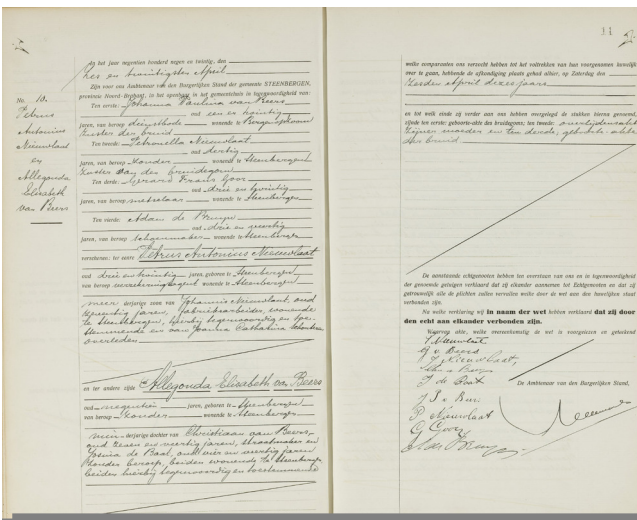 No. 10.
Petrus
Antonius
Nieuwlaat
en
Allegonda
Elisabeth
van Beers
In het jaar negentien honderd negen en twintig, den
zes en twintigsten April
Zijn voor ons Ambtenaar van den Burgerlijken Stand der gemeente STEENBERGEN,
provincie Noord-Brabant, in het openbaar in het gemeentehuis in tegenwoordigheid van:
Ten eerste: Johanna Paulina van Beers
oud een en twintig
jaren, van beroep dienstbode wonende te Bergen op Zoom
zuster der bruid
Ten tweede: Petronella Nieuwlaat
oud dertig
jaren, van beroep zonder wonende te Steenbergen
zuster van den bruidegom
Ten derde: Gerard Frans Goor
oud drie en twintig
jaren, van beroep metselaar wonende te Steenbergen
Ten vierde: Adam de Bruyn
oud drie en veertig
jaren, van beroep wonende te Steenbergen
verschenen: ter eenre Petrus Antonius Nieuwlaat
oud drie en twintig jaren, geboren te Steenbergen
van beroep wonende te Steenbergen
meerderjarige zoon van Johannis Nieuwlaat, oud
jaren, fabrieksarbeider, wonende
te Steenbergen, hierbij tegenwoordig en toe-
stemmende en van Joanna Catharina
overleden
en ter andere zijde Allegonda Elisabeth van Beers
oud negentien jaren, geboren te Steenbergen
van beroep zonder wonende te Steenbergen
minderjarige dochter van Christiaan van Beers,
oud zeven en veertig jaren, straatmaker en
de Baat, oud vier en veertig jaren
zonder beroep, beiden wonende te Steenbergen
beiden hierbij tegenwoordig en toestemmende
11
welke comparanten ons verzocht hebben tot het voltrekken van hun voorgenomen huwelijk
over te gaan, hebbende de afkondiging plaats gehad alhier, op Zaterdag den
zesden april dezes jaars
en tot welk einde zij verder aan ons hebben overgelegd de stukken hierna genoemd,
zijnde ten eerste: geboorte-akte des bruidegoms; ten tweede: overlijdensakte
zijner moeder en ten derde, geboorte-akte
der bruid
De aanstaande echtgenooten hebben ten overstaan van ons en in tegenwoordigheid
der genoemde getuigen verklaard dat zij elkander aannemen tot Echtgenooten en dat zij
getrouwelijk alle de plichten zullen vervullen welke door de wet aan den huwelijken staat
verbonden zijn.
Na welke verklaring wij in naam der wet hebben verklaard dat zij door
den echt aan elkander verbonden zijn.
Waarvan akte, welke overeenkomstig de wet is voorgelezen en geteekend
P Nieuwlaat
J Nieuwlaat
J de Baat
De Ambtenaar van den Burgerlijken Stand,
P. Nieuwlaat
G Goor
A de Bruyn